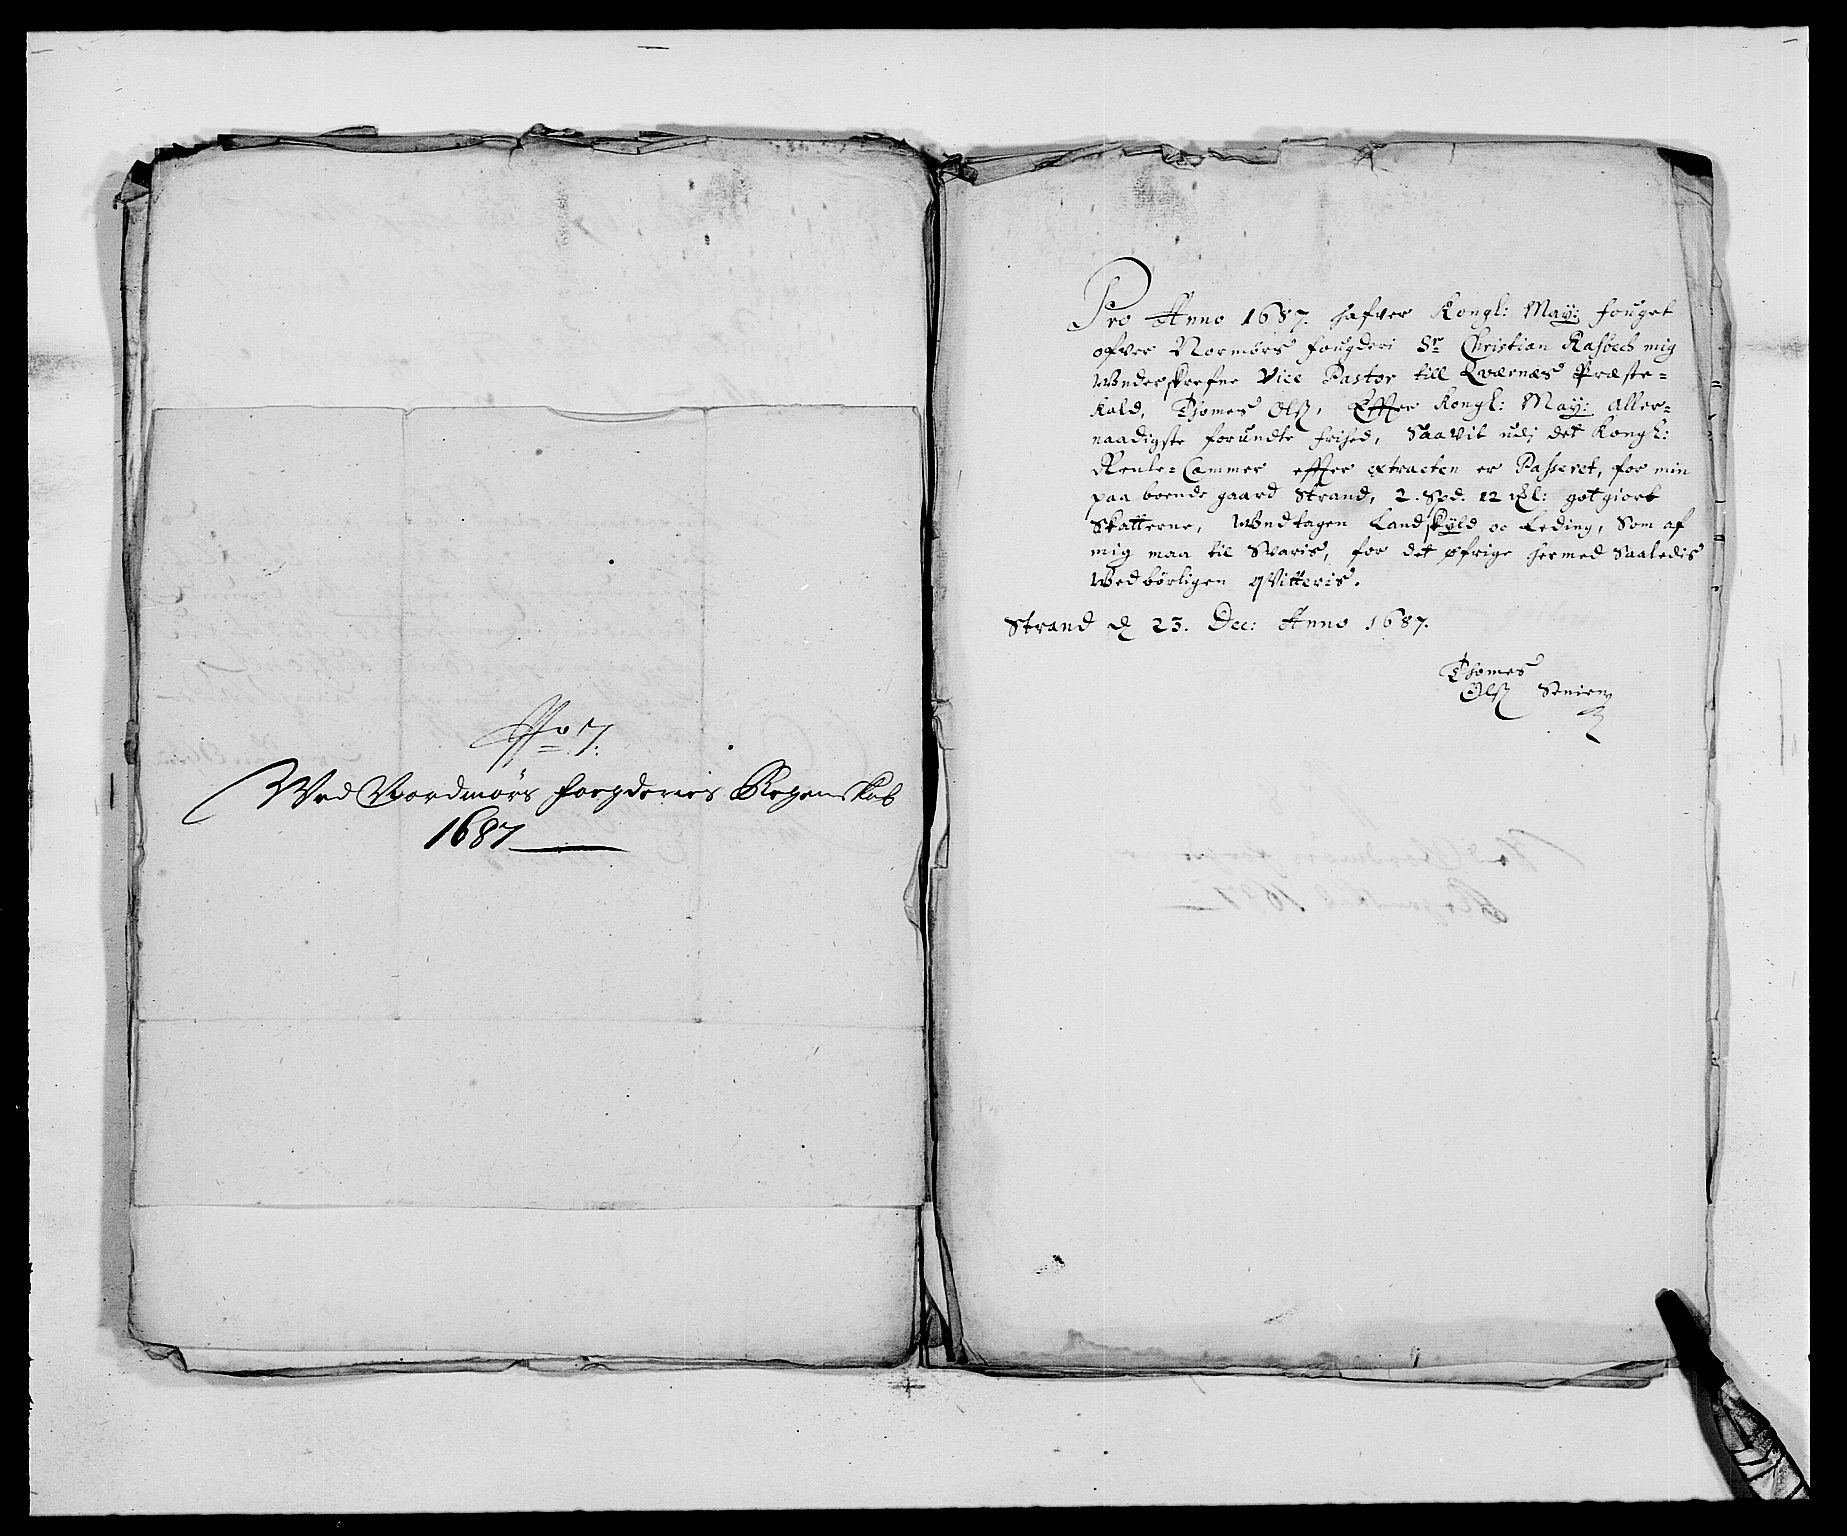 No 7.
Wed Nordmørs fougderies Regenskab
1687
Pro Anno 1687. hafver Kongl: May: fouget
ofver Normørs fougderi Sr Christian Rasbech mig
Underskrefne Vice Pastor till Qværnæs Præste-
kald, Thomes Olß, Effter Kongl: May: Aller-
naadigste forundte frihed, Saavit udj det Kongl:
Rente-Cammer effter extracten er Passeret, for min
paa boende gaard Strand, 2. Spd. 12 Ml: gotgiort
Skatterne, Undtagen Landskyld oc Leding, Som af
mig maa til Svaris, for det øfrige hermed Saaledis
Wedbørligen qvitteris.
Strand d 23. Dec: Anno 1687.
Thomes
Olß